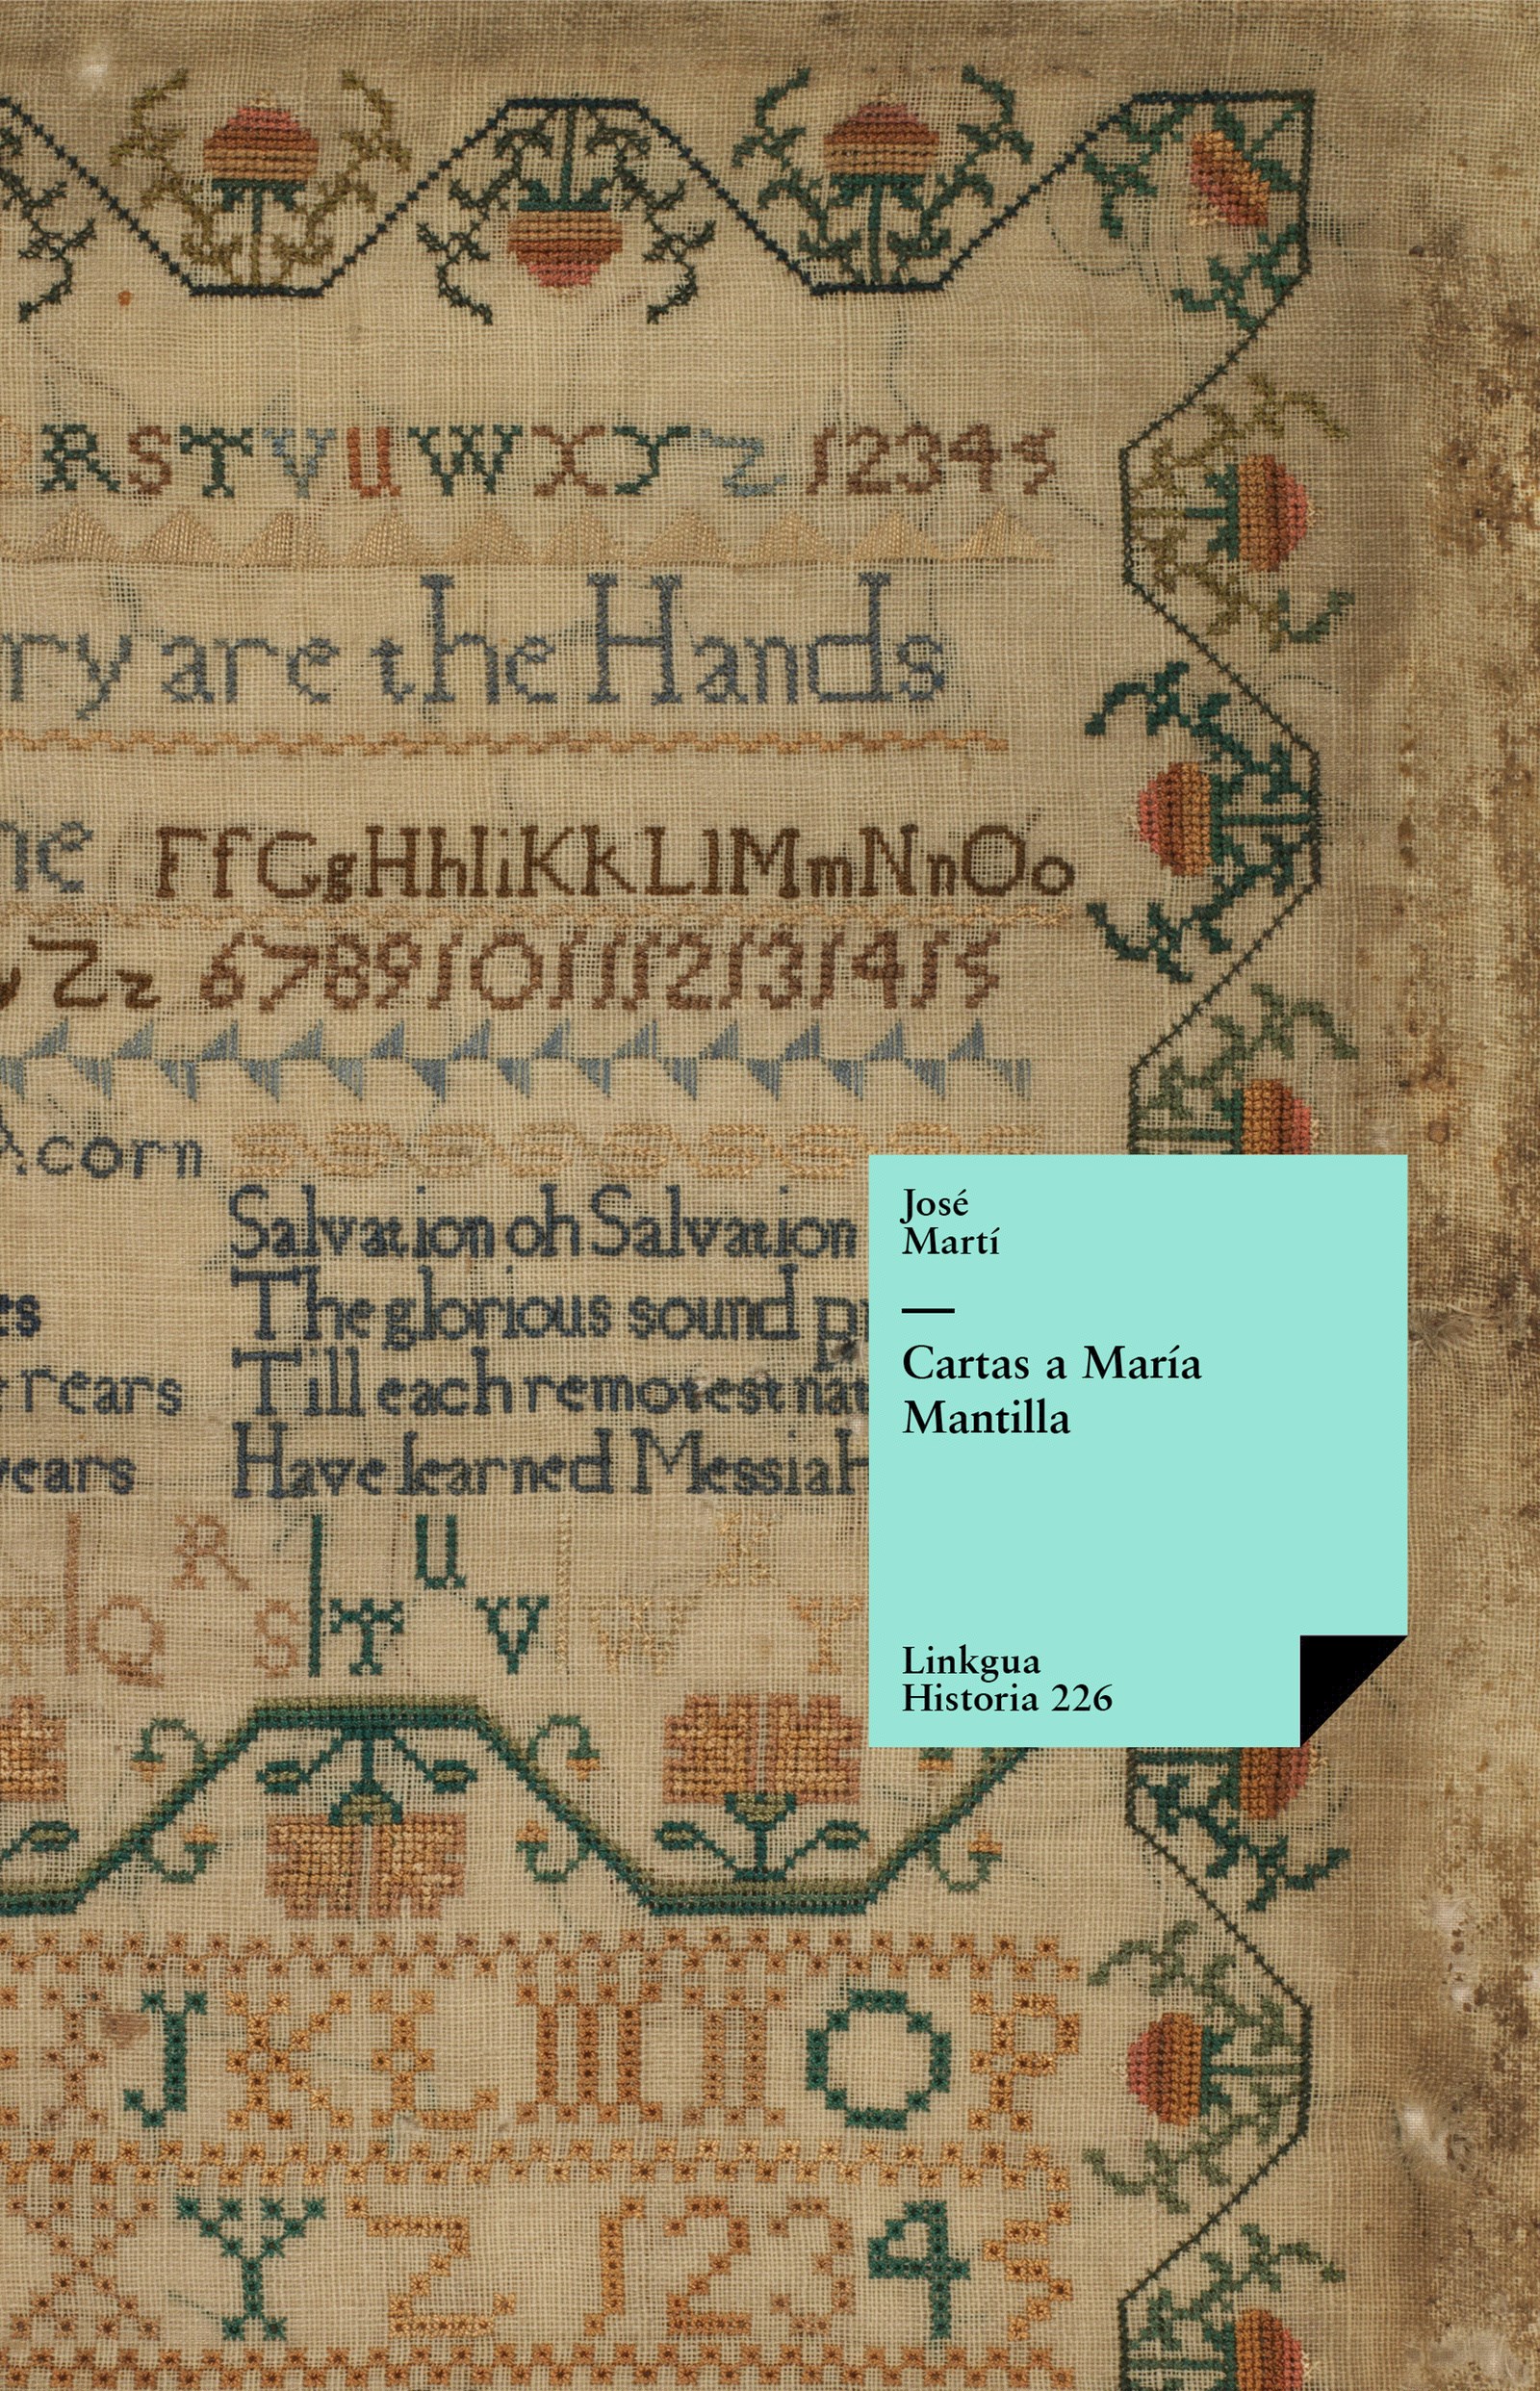 R S T V U W X Y Z 1 2 3 4 5
are the Hands
F f G g H h I i K k L l M m N n O o
Z z 6 7 8 9 10 11 12 13 14 15
Salvation oh Salvation
The glorious sound
rears Till each remotest
Have learned Messiah
R U
Q S T V W Y
J K L M N O P
X Y Z 1 2 3 4 5
José
Martí
Cartas a María
Mantilla
Linkgua
Historia 226